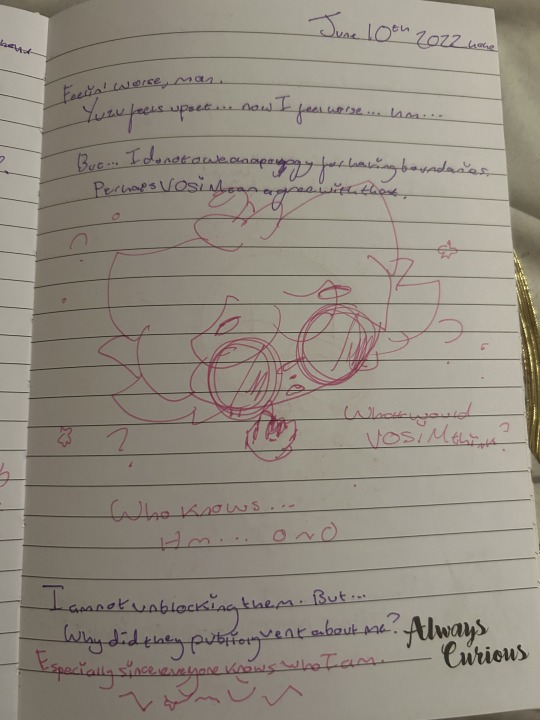 June 10th 2022
Feelin' worse, man.
Yuzu feels upset... now I feel worse... hm...
But... I do not owe an apology for having boundaries.
Perhaps VOSiM can agree with that.
What would
VOSiM think?
Who knows...
Hm... O~O
I am not unblocking them. But...
Why did they publicly vent about me?
Always
Curious
Especially since everyone knows who I am.